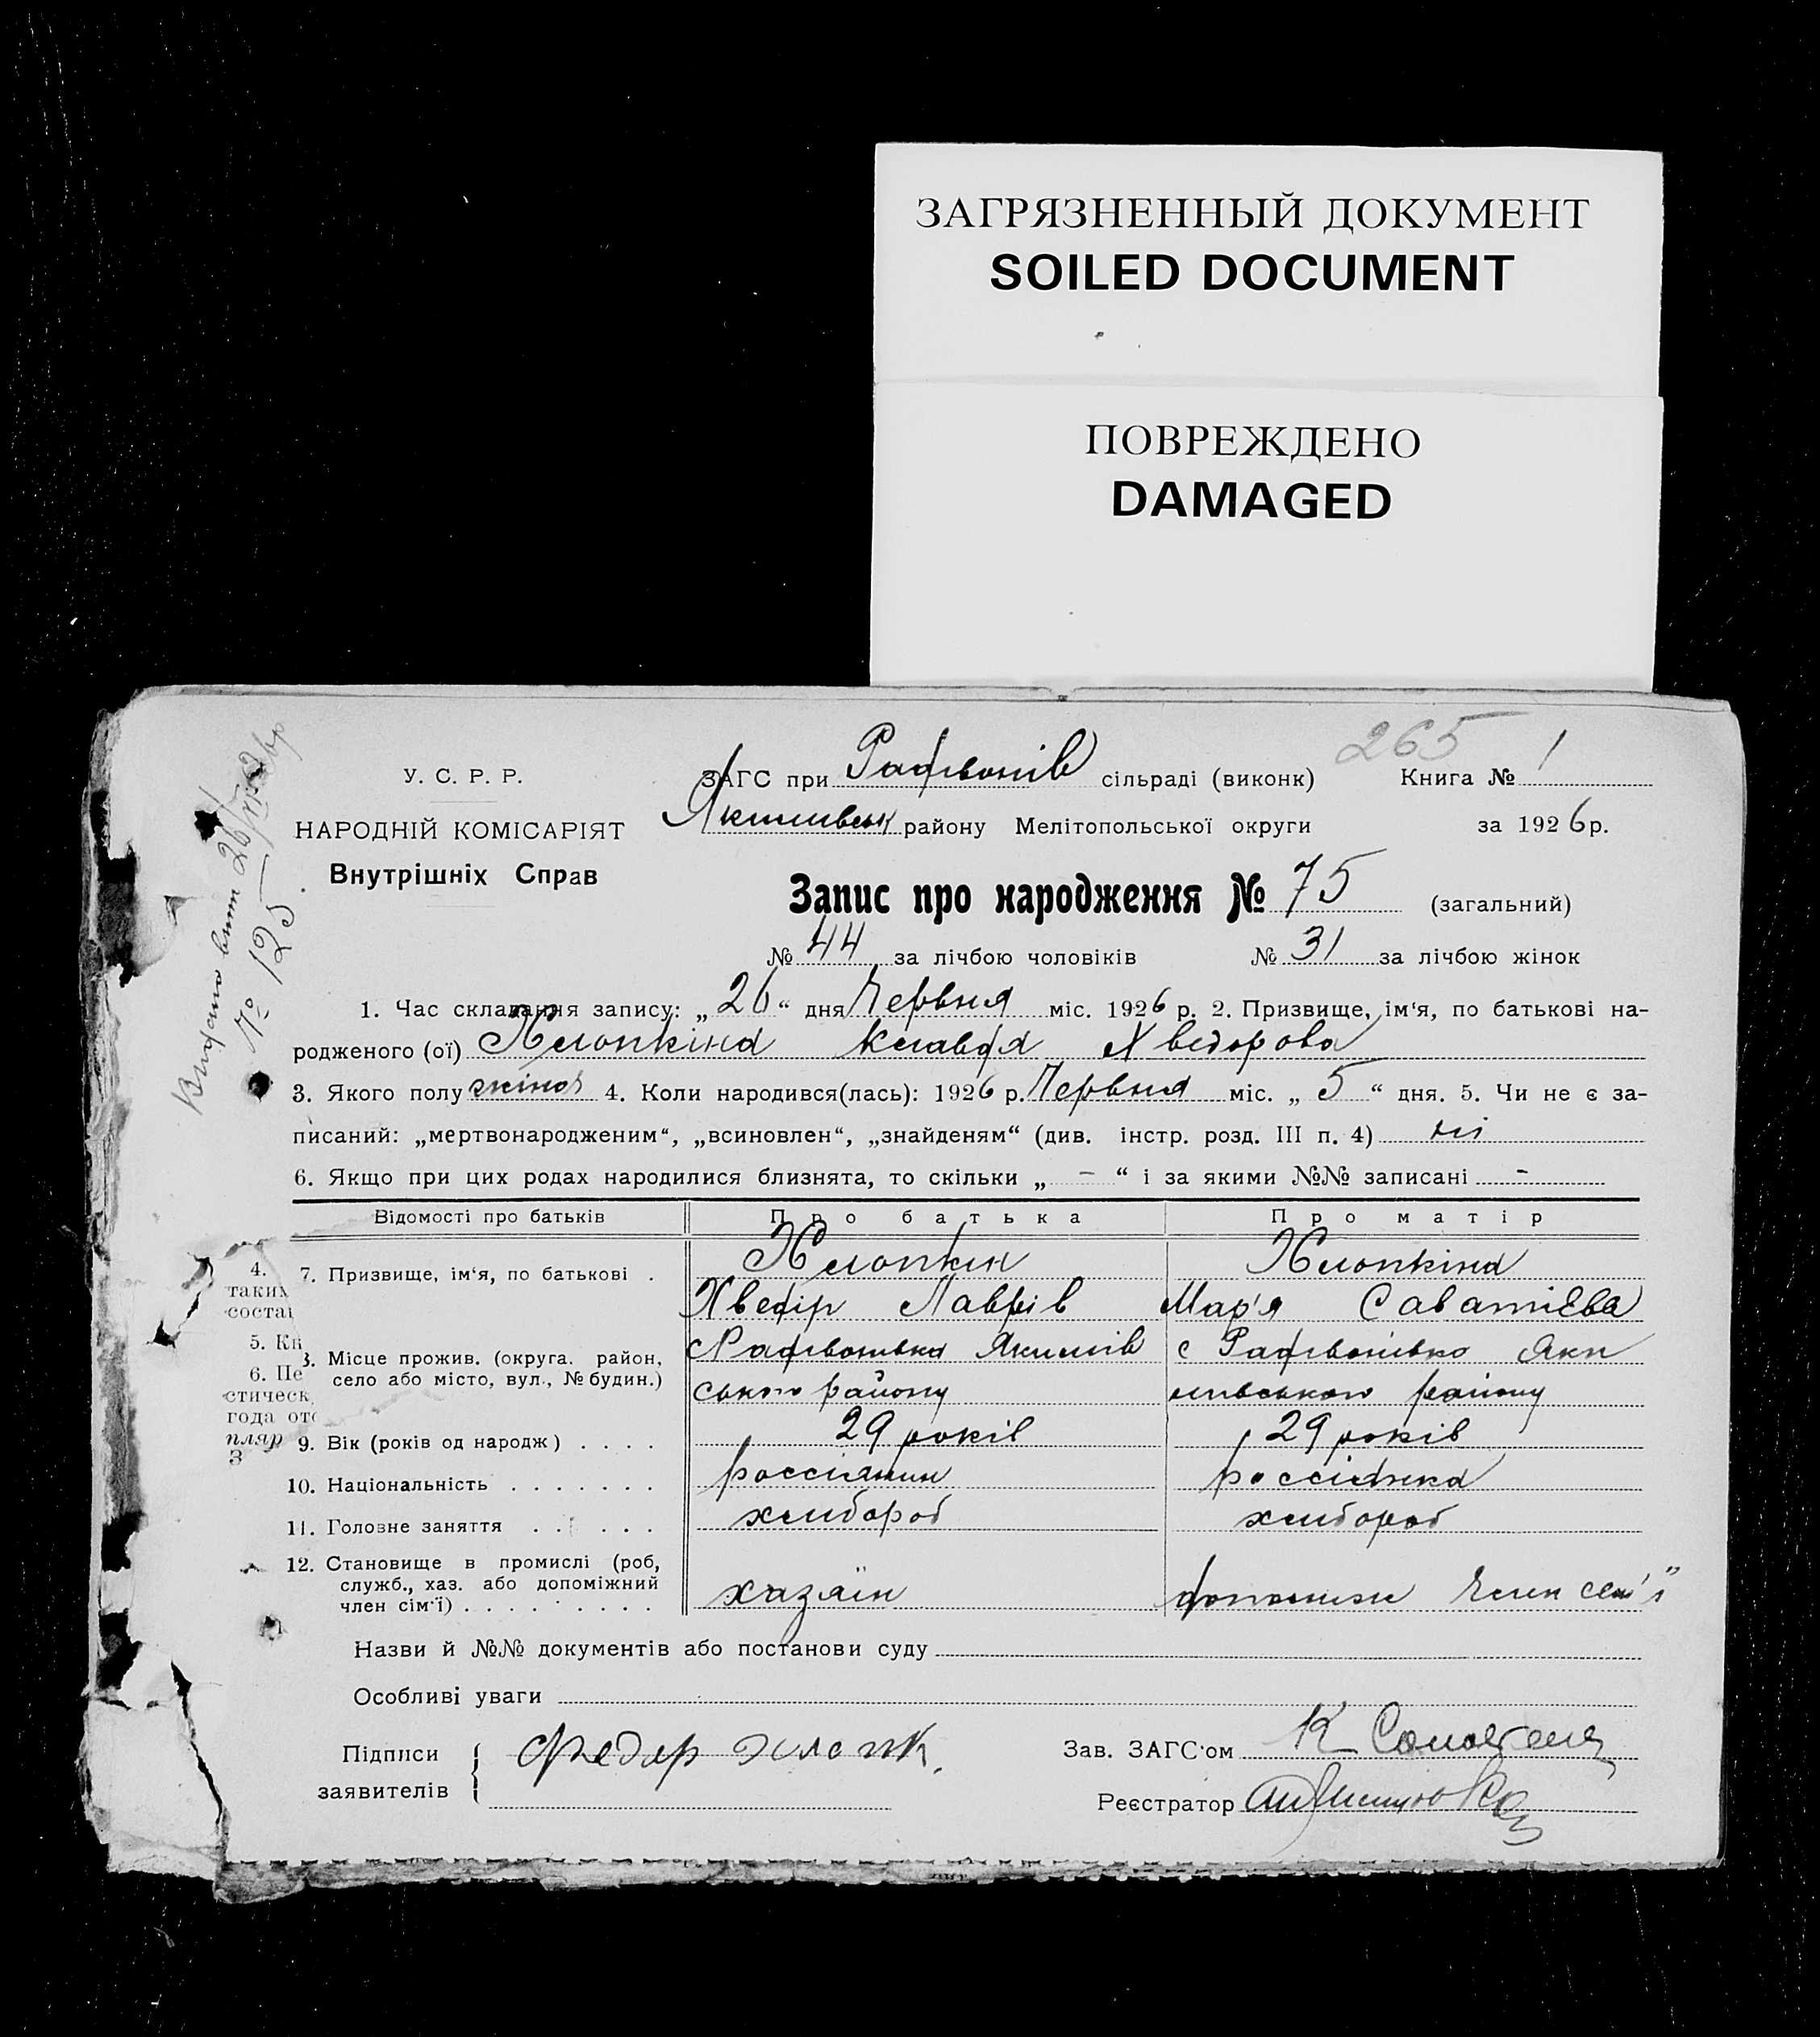 ЗАГРЯЗНЕННЫЙ ДОКУМЕНТ
SOILED DOCUMENT
ПОВРЕЖДЕНО
DAMAGED
265
У. С. Р. Р.
НАРОДНІЙ КОМІСАРІЯТ
Внутрішніх Справ
ЗАГС при сільраді (виконк) Книга № 1
району Мелітопольської округи за 1926 р.
Запис про народження № 75 (загальний)
№ 44 за лічбою чоловіків № 31 за лічбою жінок
№ 125
1. Час складання запису: „26“ дня Червня міс. 1926 р. 2. Призвище, ім‘я, по батькові на-
родженого (ої) Хлопкіна Клавдя Хведорова
3. Якого полу жіноч 4. Коли народився(лась): 1926 р. Червня міс. „5“ дня. 5. Чи не є за-
писаний: „мертвонародженим“, „всиновлен“, „знайденям“ (див. інстр. розд. III п. 4) ні
6. Якщо при цих родах народилися близнята, то скільки „ - “ і за якими №№ записані -
Відомості про батьків Про батька Про матір
7. Призвище, ім‘я, по батькові . Хлопкин Хлопкіна
Хведір Лаврів Мар'я Саватиєва
Місце прожив. (округа. район, село або місто, вул., № будин.)
ського району мивського району
9. Вік (років од народж) . . . . 29 років 29 років
10. Національність . . . . . . . россіянин россіянка
11. Головне заняття . . . . . хлибороб хлибороб
12. Становище в промислі (роб, служб., хаз. або допоміжний член сім‘ї) . . . . . . . . . хазяїн член сем'ї
Назви й №№ документів або постанови суду
Особливі уваги
Підписи заявителів Федор
Зав. ЗАГС‘ом К
Реєстратор
4.
таким
состав
5. Кн
6. Пе
стическ
года отс
пляр
3